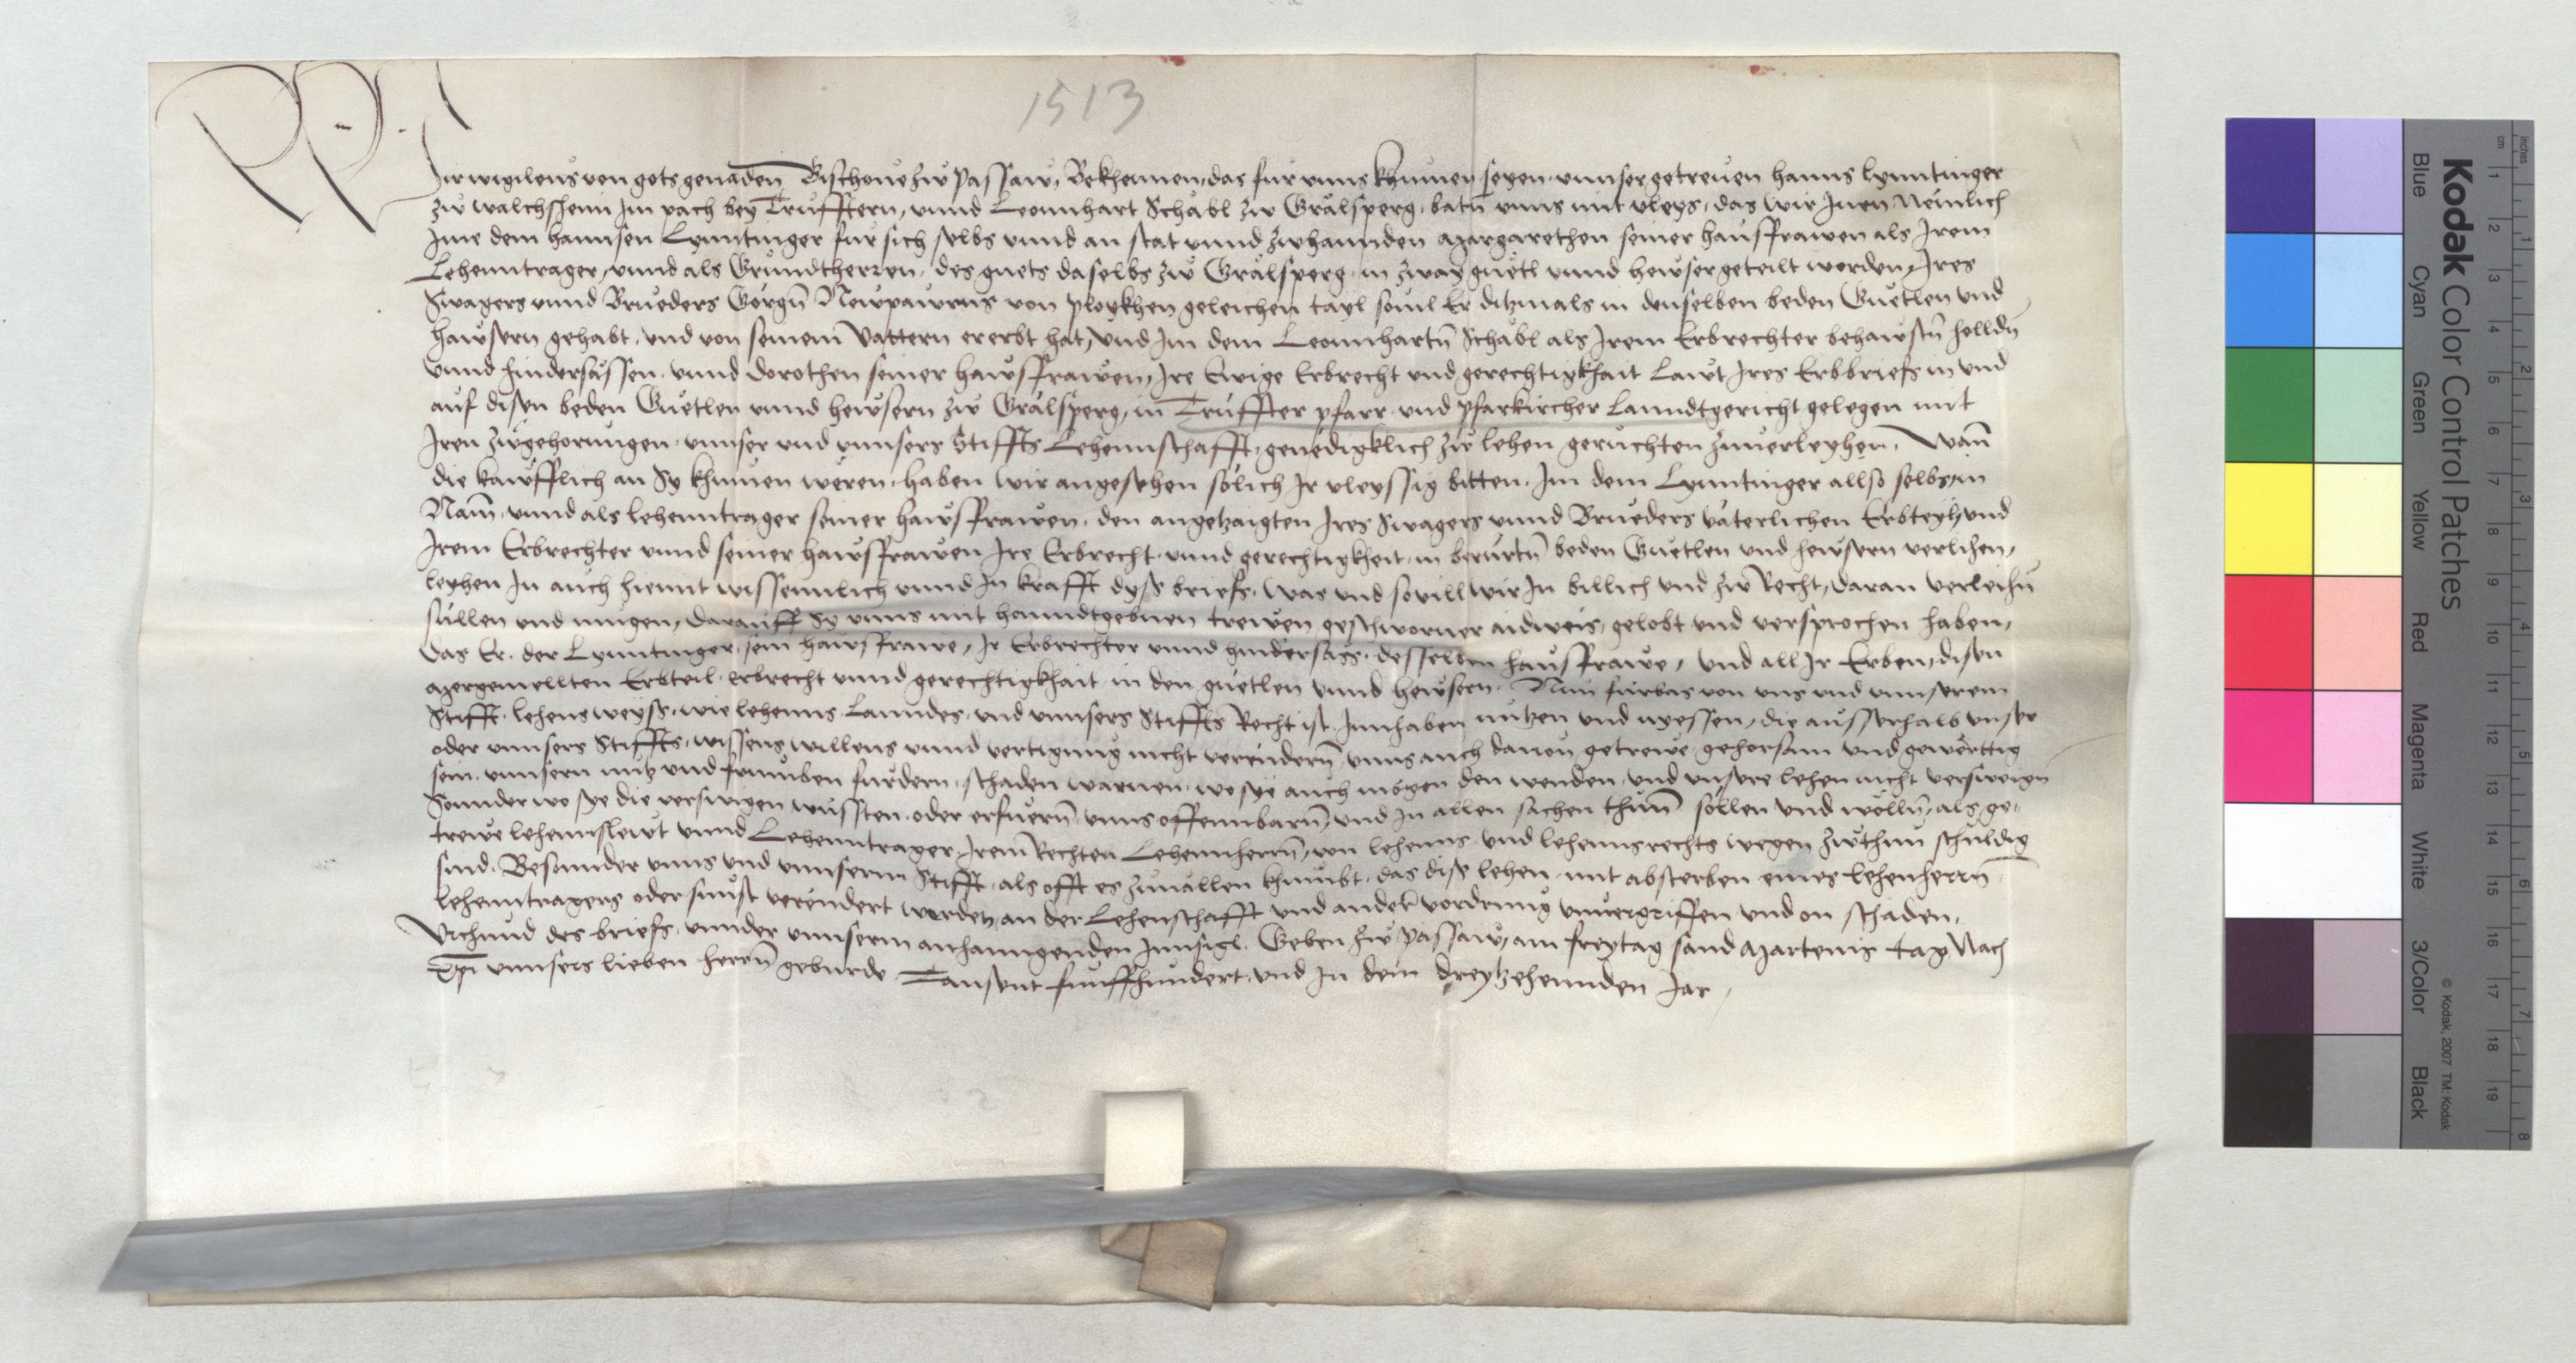 1513
Wir wigileus von gots genaden Bischoue zw Passaw, Bekhennen, das fur vnns khumen seyen vnnser getreuen hanns Lynntinger
zw walchshenn Jm pach bey Trufftern, vnnd Leonnhart Schäbl zw Grälsperg, batn̄ vnns mit vleys, das wir Jnen Nemlich
Jme dem hannsen Lynntinger fur sich selbs vnnd an stat vnnd zwhannden Margarethen seiner hausfrawen als Jrem
Lehenntrager, vnnd als Grundtherren, des guets daselbs zw Grälsperg in zway guetl vnnd hewser geteilt worden, Jres
Swagers vnnd Brueders Görgn̄ Newpawrns von ploykhen geleichen tayl souil Er ditzmals in denselben beden Guetlen vnd
hawsern gehabt, vnd von seinem Vattern ererbt hat, vnd Jm dem Leonnhartn̄ Schäbl als Jrem Erbrechter behawstn̄ holldn̄
vnnd hindersässen, vnnd Dorothen seiner hawsfrawen, Jre Ewige Erbrecht vnd gerechtigkhait Lawt Jres Erbbriefs in vnd
auf disen beden Guetlen vnnd hewsern zw Grälsperg, in Truffter pfarr vnd pfarkircher Lanndtgericht gelegen mit
Jren zwgehorungen, vnnser vnd vnnsers Stiffts Lehennschafft, genedigklich zw lehen geruchten zuuerleyhen, Wan̄
die kawfflich an Sy khumen weren, haben wir angesehen solich Jr vleyssig bitten, Jm dem Lynntinger allso selbs, in
Nam̄ vnnd als lehenntrager seiner hawsfrawen, den angetzaigten Jres Swagers vnnd Brueders väterlichen Erbteyl, vnd
Jrem Erbrechter vnnd seiner hawsfrawen Jre Erbrecht vnnd gerechtigkheit in berurtn̄ beden Guetlen vnd hewsern verlihen,
leyhen Jn auch hiemit wissennlich vnnd in krafft dyss briefs, Was vnd souill wir Jn billich vnd zw Recht, daran verleihn̄
sullen vnd mugen, darauff Sy vnns mit hanndtgebnen trewen geschworner aidweis, gelobt vnd versprochen haben,
Das Er, der Lynntinger, sein hawsfrawe, Jr Erbrechter vnnd hindersäss, desselben hausfrawe, vnd all Jr Erben, disen
Mergemellten Erbteil, erbrecht vnnd gerechtigkhait in den guetlen vnnd hewsern, Nun furbas von vns vnd vnnserem
Stifft, lehensweyss, wie lehenns, Lanndes, vnd vnnsers Stiffts Recht ist, Jnnhaben nutzen vnd nyessen, die ausserhalb vnser
oder vnnsers Stiffts, wissens willens vnnd vertigung nicht verendern̄ vnns auch dauon getrewe gehorsam vnd gewerttig
sein, vnnsern nutz vnd frumben furdern, schaden warnen, wo sye auch mogen den wenden, vnd vnsere lehen nicht versweign̄
Sonnder wo sye die verswigen wussten, oder erfuern̄ vnns offennbarn̄, vnd Jn allen sachen thun̄ sollen vnd wölln̄, als ge-
trewe lehennslewt vnnd Lehenntrager, Jrem Rechten Lehennherrn̄, von lehenns vnd lehennsrechts wegen zwthun schuldig
sind, Besunder vnns vnd vnnserm Stifft, als offt es zuuallen khumbt, das dise lehen, mit absterben eines lehenherrn̄
lehenntragers oder sunst verendert wurdet, an der Lehenschafft vnd ander vordrung vnuergriffen vnd on schaden,
Vrchund des briefs, vnnder vnnserm anhanngenden Jnnsigl, Geben zw Passaw, am freytag sand Martenis tag Nach
Xp̄i vnnsers lieben herrn̄ geburde Tausent funffhundert, vnd in dem dreytzehennden Jar,
Kodak Color Control Patches
Blue Cyan Green Yellow Red Magenta White 3/Color Black
© Kodak, 2007 TM: Kodak
cm 1 2 3 4 5 6 7 8 9 10 11 12 13 14 15 16 17 18 19
inches 1 2 3 4 5 6 7 8